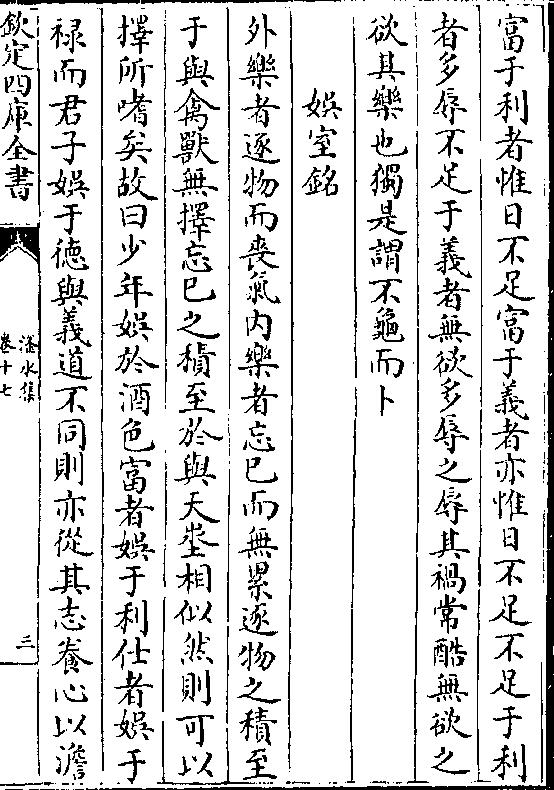 富于利者惟日不足富于義者亦惟日不足不足于利
者多辱不足于義者無欲多辱之辱其禍常酷無欲之
欲其樂也獨是謂不龜而卜
娛室銘
外樂者逐物而喪氣内樂者忘已而無累逐物之積至
于與禽獸無擇忘已之積至於與天坐相似然則可以
擇所嗜矣故曰少年娛於酒色富者娛于利仕者娛于
禄而君子娛于德與義道不同則亦從其志養心以澹
欽定四庫全書
滏水集
卷十七
三